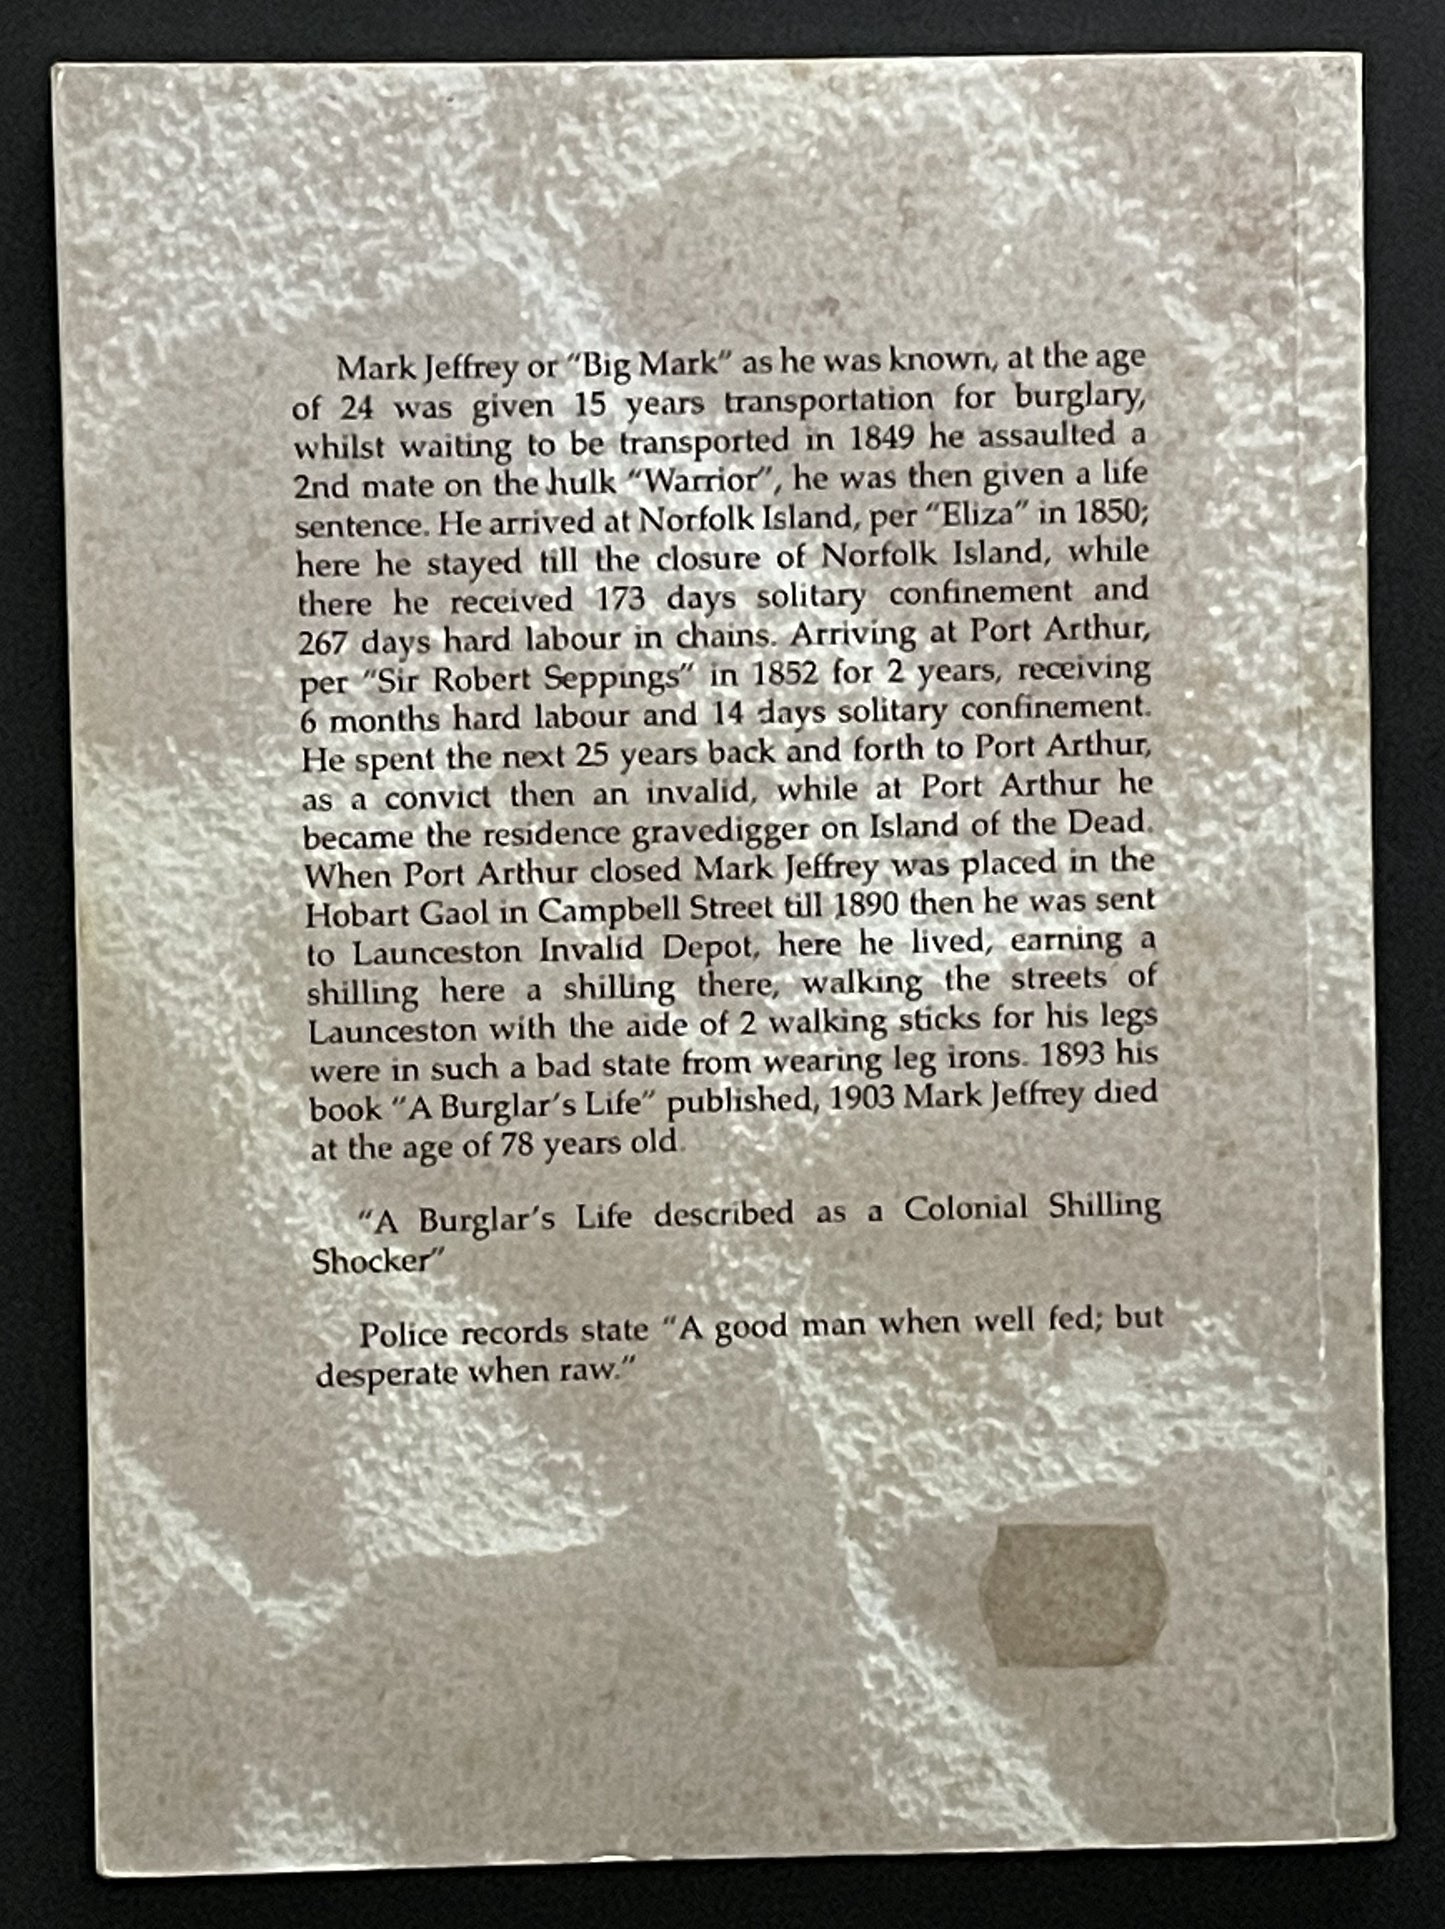 Mark Jeffrey or “Big Mark” as he was known, at the age
of 24 was given 15 years transportation for burglary,
whilst waiting to be transported in 1849 he assaulted a
2nd mate on the hulk “Warrior”, he was then given a life
sentence. He arrived at Norfolk Island, per “Eliza” in 1850;
here he stayed till the closure of Norfolk Island, while
there he received 173 days solitary confinement and
267 days hard labour in chains. Arriving at Port Arthur,
per “Sir Robert Seppings” in 1852 for 2 years, receiving
6 months hard labour and 14 days solitary confinement.
He spent the next 25 years back and forth to Port Arthur,
as a convict then an invalid, while at Port Arthur he
became the residence gravedigger on Island of the Dead.
When Port Arthur closed Mark Jeffrey was placed in the
Hobart Gaol in Campbell Street till 1890 then he was sent
to Launceston Invalid Depot, here he lived, earning a
shilling here a shilling there, walking the streets of
Launceston with the aide of 2 walking sticks for his legs
were in such a bad state from wearing leg irons. 1893 his
book “A Burglar’s Life” published, 1903 Mark Jeffrey died
at the age of 78 years old.
“A Burglar’s Life described as a Colonial Shilling
Shocker”
Police records state “A good man when well fed; but
desperate when raw.”